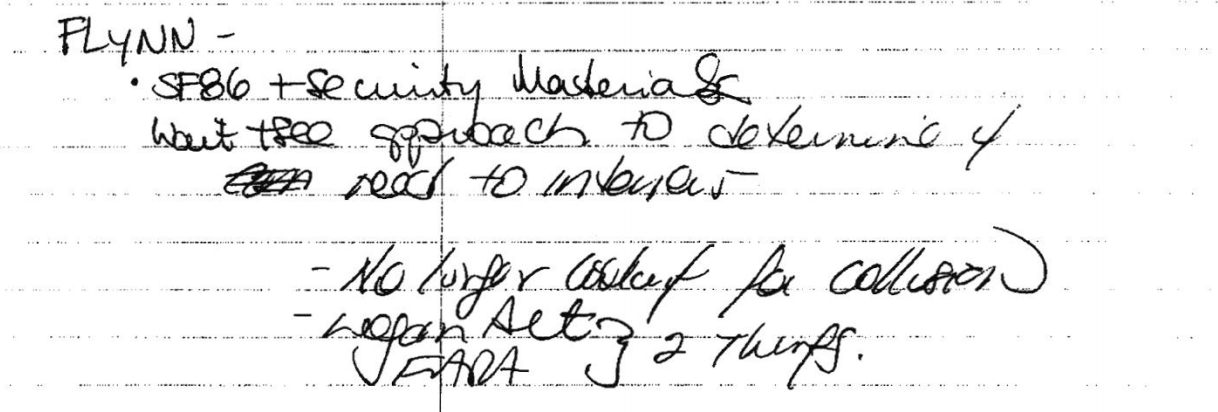 FLYNN -
• SF86 + Security Materials
Want + see approach to determine if
need to interview
- No longer for collusion
- Logan Act } 2 things.
FARA